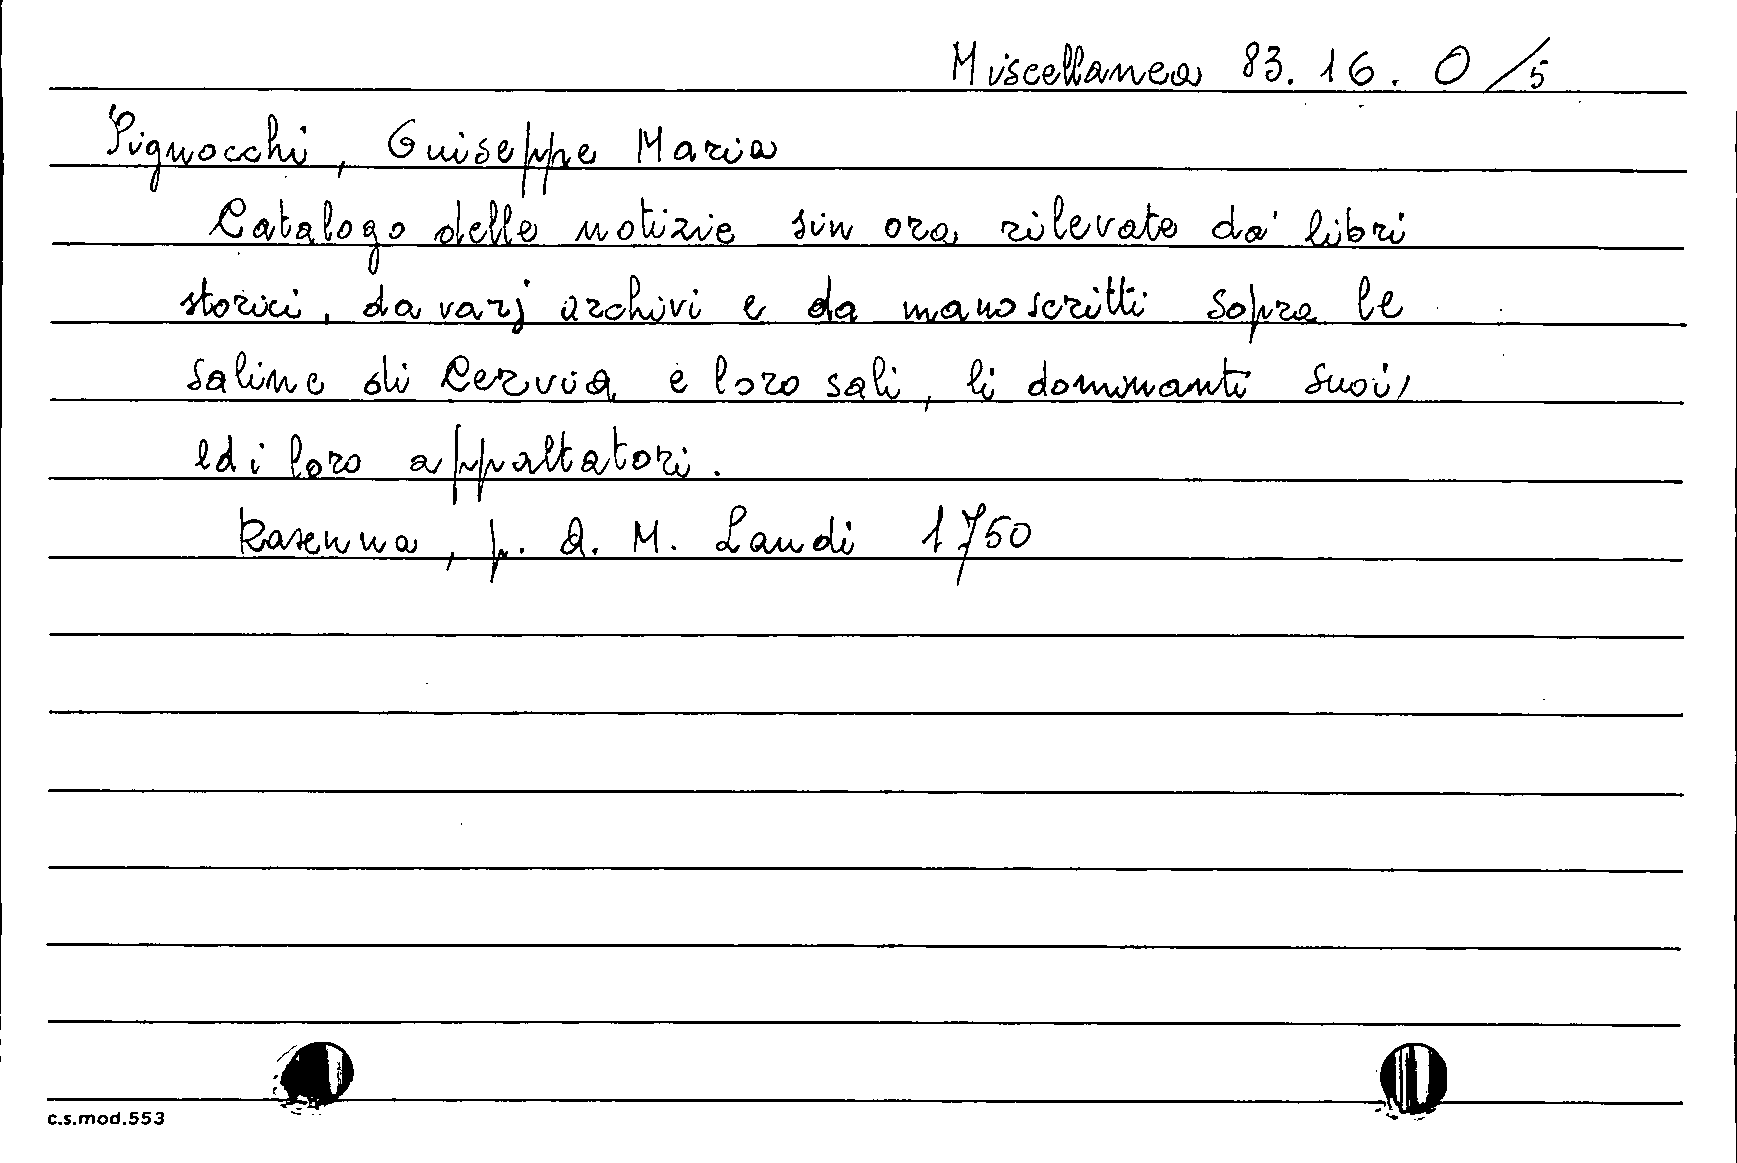 Miscellanea 83. 16. O /5
Pignocchi, Guiseppe Maria
Catalogo delle notizie sin ora rilevate da' libri
storici, da varj archivi e da manoscritti sopra le
saline di Cervia e loro sali, li dominanti suoi,
ed i loro appaltatori.
Ravenna, p. A. M. Landi 1750
c.s.mod.553